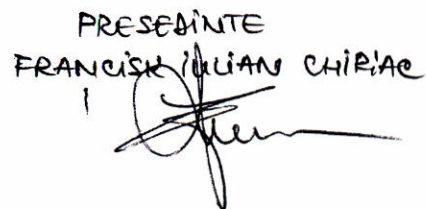 PRESEDINTE
FRANCISK IULIAN CHIRIAC